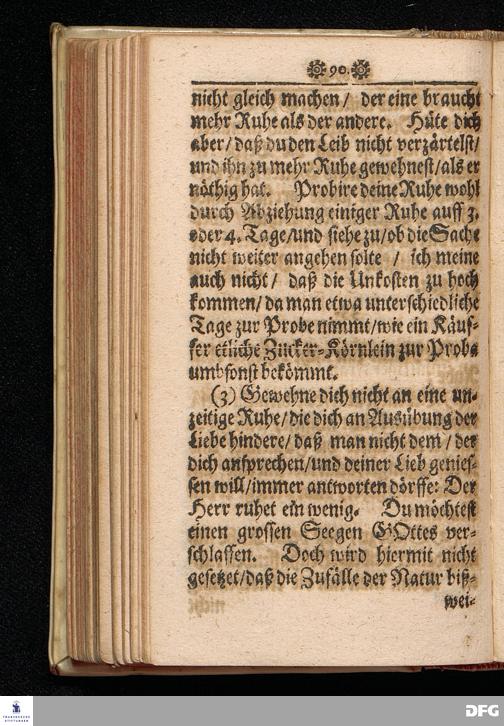 90.
nicht gleich machen / der eine braucht
mehr Ruhe als der andere. Hüte dich
aber / daß du den Leib nicht verzärtelst /
und ihn zu mehr Ruhe gewehnest / als er
nöthig hat. Probire deine Ruhe wohl
durch Abziehung einiger Ruhe auff 3.
oder 4. Tage / und siehe zu / ob die Sache
nicht weiter angehen solte / ich meine
auch nicht / daß die Unkosten zu hoch
kommen / da man etwa unterschiedliche
Tage zur Probe nimmt / wie ein Käuf-
fer etliche Zucker-Körnlein zur Probe
umbsonst bekömmt.
(3) Gewehne dich nicht an eine un-
zeitige Ruhe / die dich an Ausübung der
Liebe hindere / daß man nicht dem / der
dich ansprechen / und deiner Lieb genies-
sen will / immer antworten dörffe: Der
Herr ruhet ein wenig. Du möchtest
einen grossen Seegen GOttes ver-
schlaffen. Doch wird hiermit nicht
gesetzet / daß die Zufälle der Natur biß-
wei-
FRANCKESCHE
STIFTUNGEN
DFG